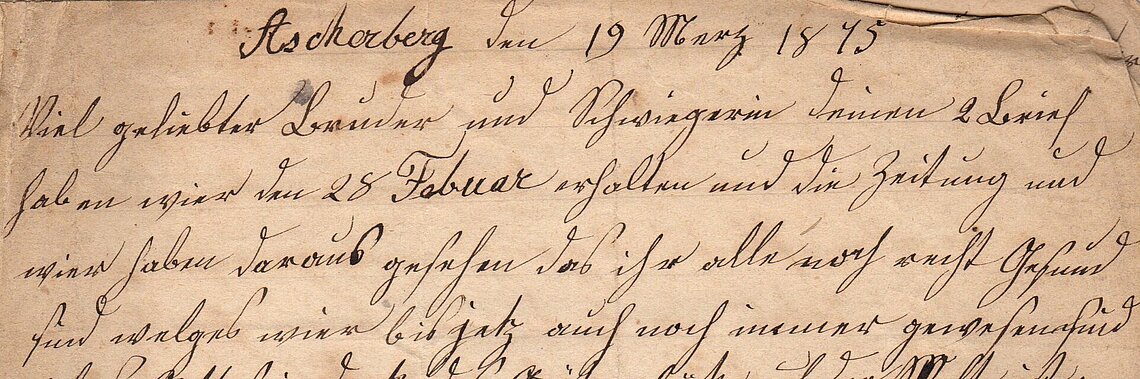 Ascherberg den 19 Merz 1875
Viel geliebter Bruder und Schwiegerin deinen 2 Brief
haben wier den 28 Febuar erhalten und die Zeitung und
wier haben daraus gesehen das ihr alle noch recht Gesund
sind welges wier bis jetz auch noch immer gewesen sind